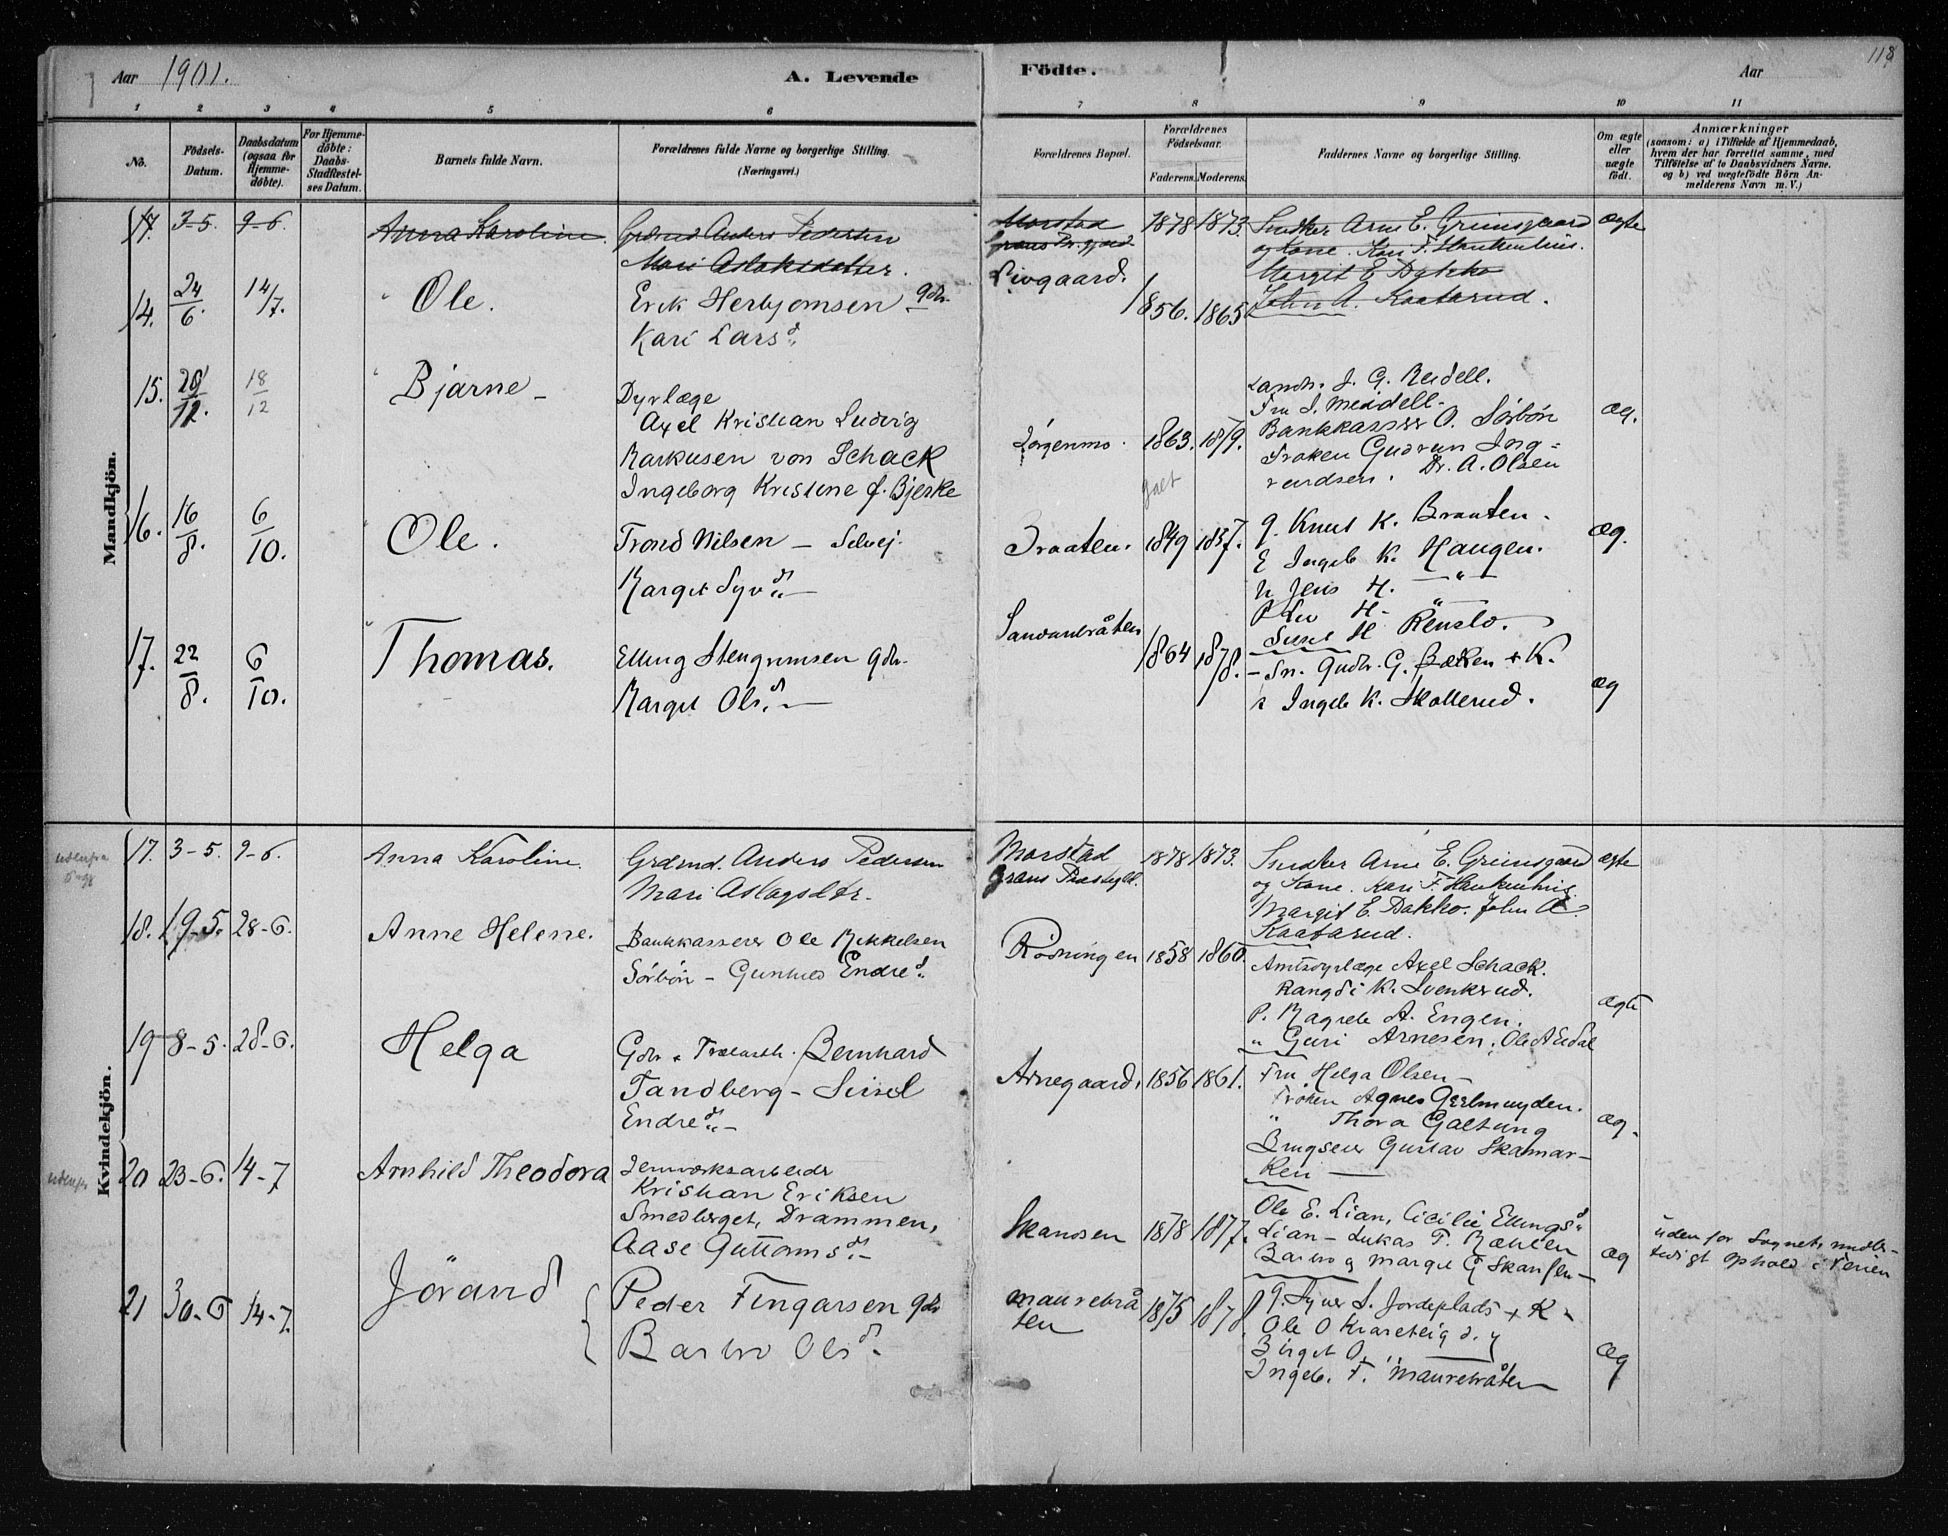 Aar 1901.
A. Levende
Födte.
Aar
118
1 2 3 4 5 6 7 8 9 10 11
No.
Födsels-
Datum.
Daabsdatum
(ogsaa for
Hjemme-
döbte).
For Hjemme-
döbte:
Daabs-
Stadfæstel-
ses Datum.
Barnets fulde Navn.
Forældrenes fulde Navne og borgerlige Stilling.
(Næringsvei.)
Forældrenes Bopæl.
Forældrenes
Födselsaar.
Faderens.
Moderens.
Faddernes Navne og borgerlige Stilling.
Om ægte
eller
uægte
födt.
Anmærkninger
(saasom: a) i Tilfælde af Hjemmedaab,
hvem der har forrettet samme, med
Tilföielse af to Daabsvidners Navne.
og b) ved uægtefödte Börn An-
melderens Navn m. V.)
Mandkjön.
17. 3-5. 9-6. Anna Karoline. Grdmd Anders Pedersen
Mari Aslaksdatter.
Morstad
Grans Pr.gjæld
1878 1873. Snedker Arne E. Grimsgaard
og Kone. Kari F. Haukenhus.
Margit E Dokko
John A. Kaatarud.
ægte
14. 24/6. 14/7. Ole. Erik Herbjornsen gdr.
Kari Larsd.
Livgaard.
1856. 1865
15. 20/12. 18/12 Bjarne Dyrlæge
Axel Kristian Ludvig
Markusen von Schack
Ingeborg Kristine f. Bjerke
Jörgenmo. 1863. 1879.
Landh. J. G. Meidell.
Fru S. Meidell
Bankkasser O. Sörbön
Fröken Gudrun Ing-
vardsen. Dr. A. Olsen
æg.
galt
16. 16/8. 6/10. Ole. Trond Nilsen Selvej.
Margit Syvd.
Braaten. 1849 1857.
G. Knut K. Braaten.
E Ingeb K. Haugen.
N Jens H. "
P Liv H. "
Sissel H Renslo.
æg.
17. 22/8. 6/10. Thomas. Elling Stengrimsen gdr.
Margit Olsd.
Sandaabråten
1864 1878.
Sn. Gudbr. G. Bækken + K.
s Ingeb K. Skollerud.
æg
Kvindekjön.
udenfra
Sogn
17. 3-5. 9-6. Anna Karoline. Grdmd. Anders Pedersen
Mari Aslagsdtr.
Morstad
Grans Præstegld.
1878 1873. Snedker Arne E. Grimsgaard
og Kone. Kari F. Haukenhus
Margit E. Dokko. John A.
Kaatarud.
ægte
18. 19-5. 28-6. Anne Helene. Bankkasserer Ole Mikkelsen
Sörbön Gunhild Endred.
Rodningen 1858 1860.
Amtsdyrlæge Axel Schack.
Rangdi K. Svenkerud.
P. Magrete A. Engen.
" Guri Arnesen, Ole A Eidal
ægte
19 8-5. 28-6. Helga Gdr & Trælasth. Bernhard
Tandberg Sissel
Endred.
Arnegaard. 1856 1861.
Fru Helga Olsen
Fröken Agnes Geelmuyden.
" Thora Galtung
Brugseier Gustav Skamar-
ken
æg.
udenfra
20 23-6. 14-7 Arnhild Theodora Jernværksarbeider
Kristian Eriksen
Smedberget, Drammen,
Aase Guttormsd.
Skansen 1878 1877.
Ole E. Lian, Cicilie Ellingsd.
Lian Lukas T. Mæhlen
Barbro og Margit G Skansen
æg
uden for Sognet, midler-
tidigt ophold i Ferien
21 30-6 14-7. Jörand Peder Fingarsen gdr
Barbro Olsd.
Maurebrå
ten
1875 1878
G. Syver S. Jordeplads + K
Ole O Kvarekvig d.y
Birget O. "
Ingeb. F. Maurebråten
æg